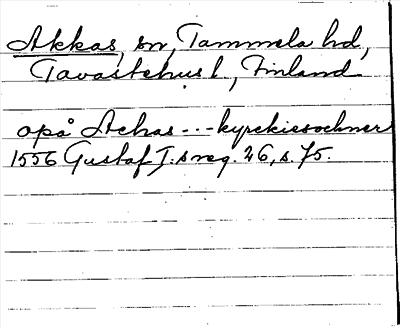 Akkas, sn, Tammela hd,
Tavastehus l., Finland
opå Achas --- kyrckiesochner
1556 Gustaf I:s reg. 26, s. 75.